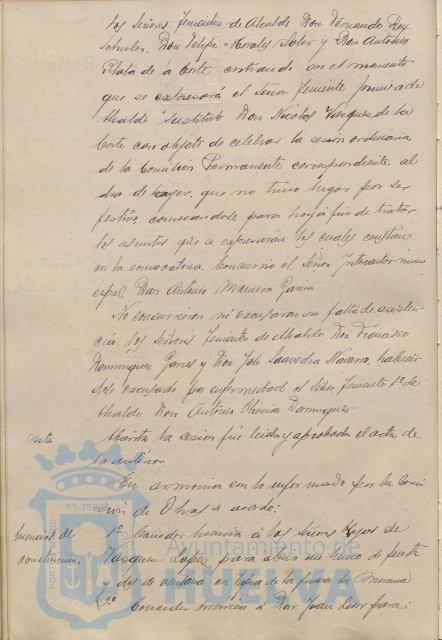 los Señores Tenientes de Alcalde Don Fernando Rey
Don Felipe Morales Soler y Don Antonio
Plata de la Corte entrando en el momento
que se expresará el Señor Teniente primero de
Alcalde Sustituto Don Nicolás Vázquez de la
Corte con objeto de celebrar la sesión ordinaria
de la Comisión Permanente correspondiente al
dia de ayer, que no tuvo lugar por ser
festivo, convocandose para hoy á fin de tratar
los asuntos que se expresarán los cuales constan
en la convocatoria. Concurrió el Señor Interventor muni
cipal, Don Antonio Garcia
No concurrieron ni excusaron su falta de asisten
cia los Señores Tenientes de Alcalde Don Francisco
Dominguez Garces y Don José Saavedra Navarro, habien
dole excusado por enfermedad el Señor Teniente 1º de
Alcalde Don Antonio Oliveira Dominguez
Acta Abierta la sesión fué leida y aprobada el acta de
la anterior
En armonia con lo informado por la Comi
sión de Obras se acordó:
Licencias de 1º Conceder licencia á los Señores Hijos de
construccion. Vazquez Lopez para abrir un hueco de puerta
y dos de ventana en la casa de la
2º Conceder licencia á Don Juan para:
PORT
ET TERRÆ
Ayuntamiento de
HUELVA